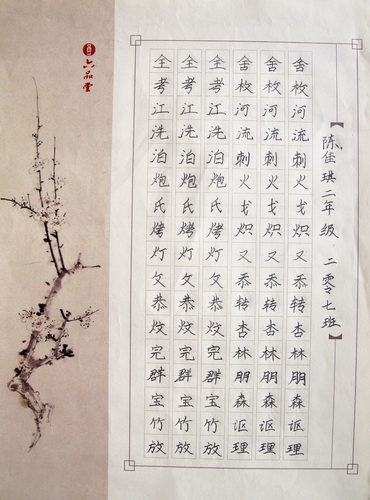 【陈佳琪二年级 二零七班】
舍枚河流刺火戈炽又忝转杏林朋森讴理
舍枚河流刺火戈炽又忝转杏林朋森讴理
舍枚河流刺火戈炽又忝转杏林朋森讴理
全考江洗泊炮氏烤灯攵恭炆完群宝竹放
全考江洗泊炮氏烤灯攵恭炆完群宝竹放
全考江洗泊炮氏烤灯攵恭炆完群宝竹放
六品堂